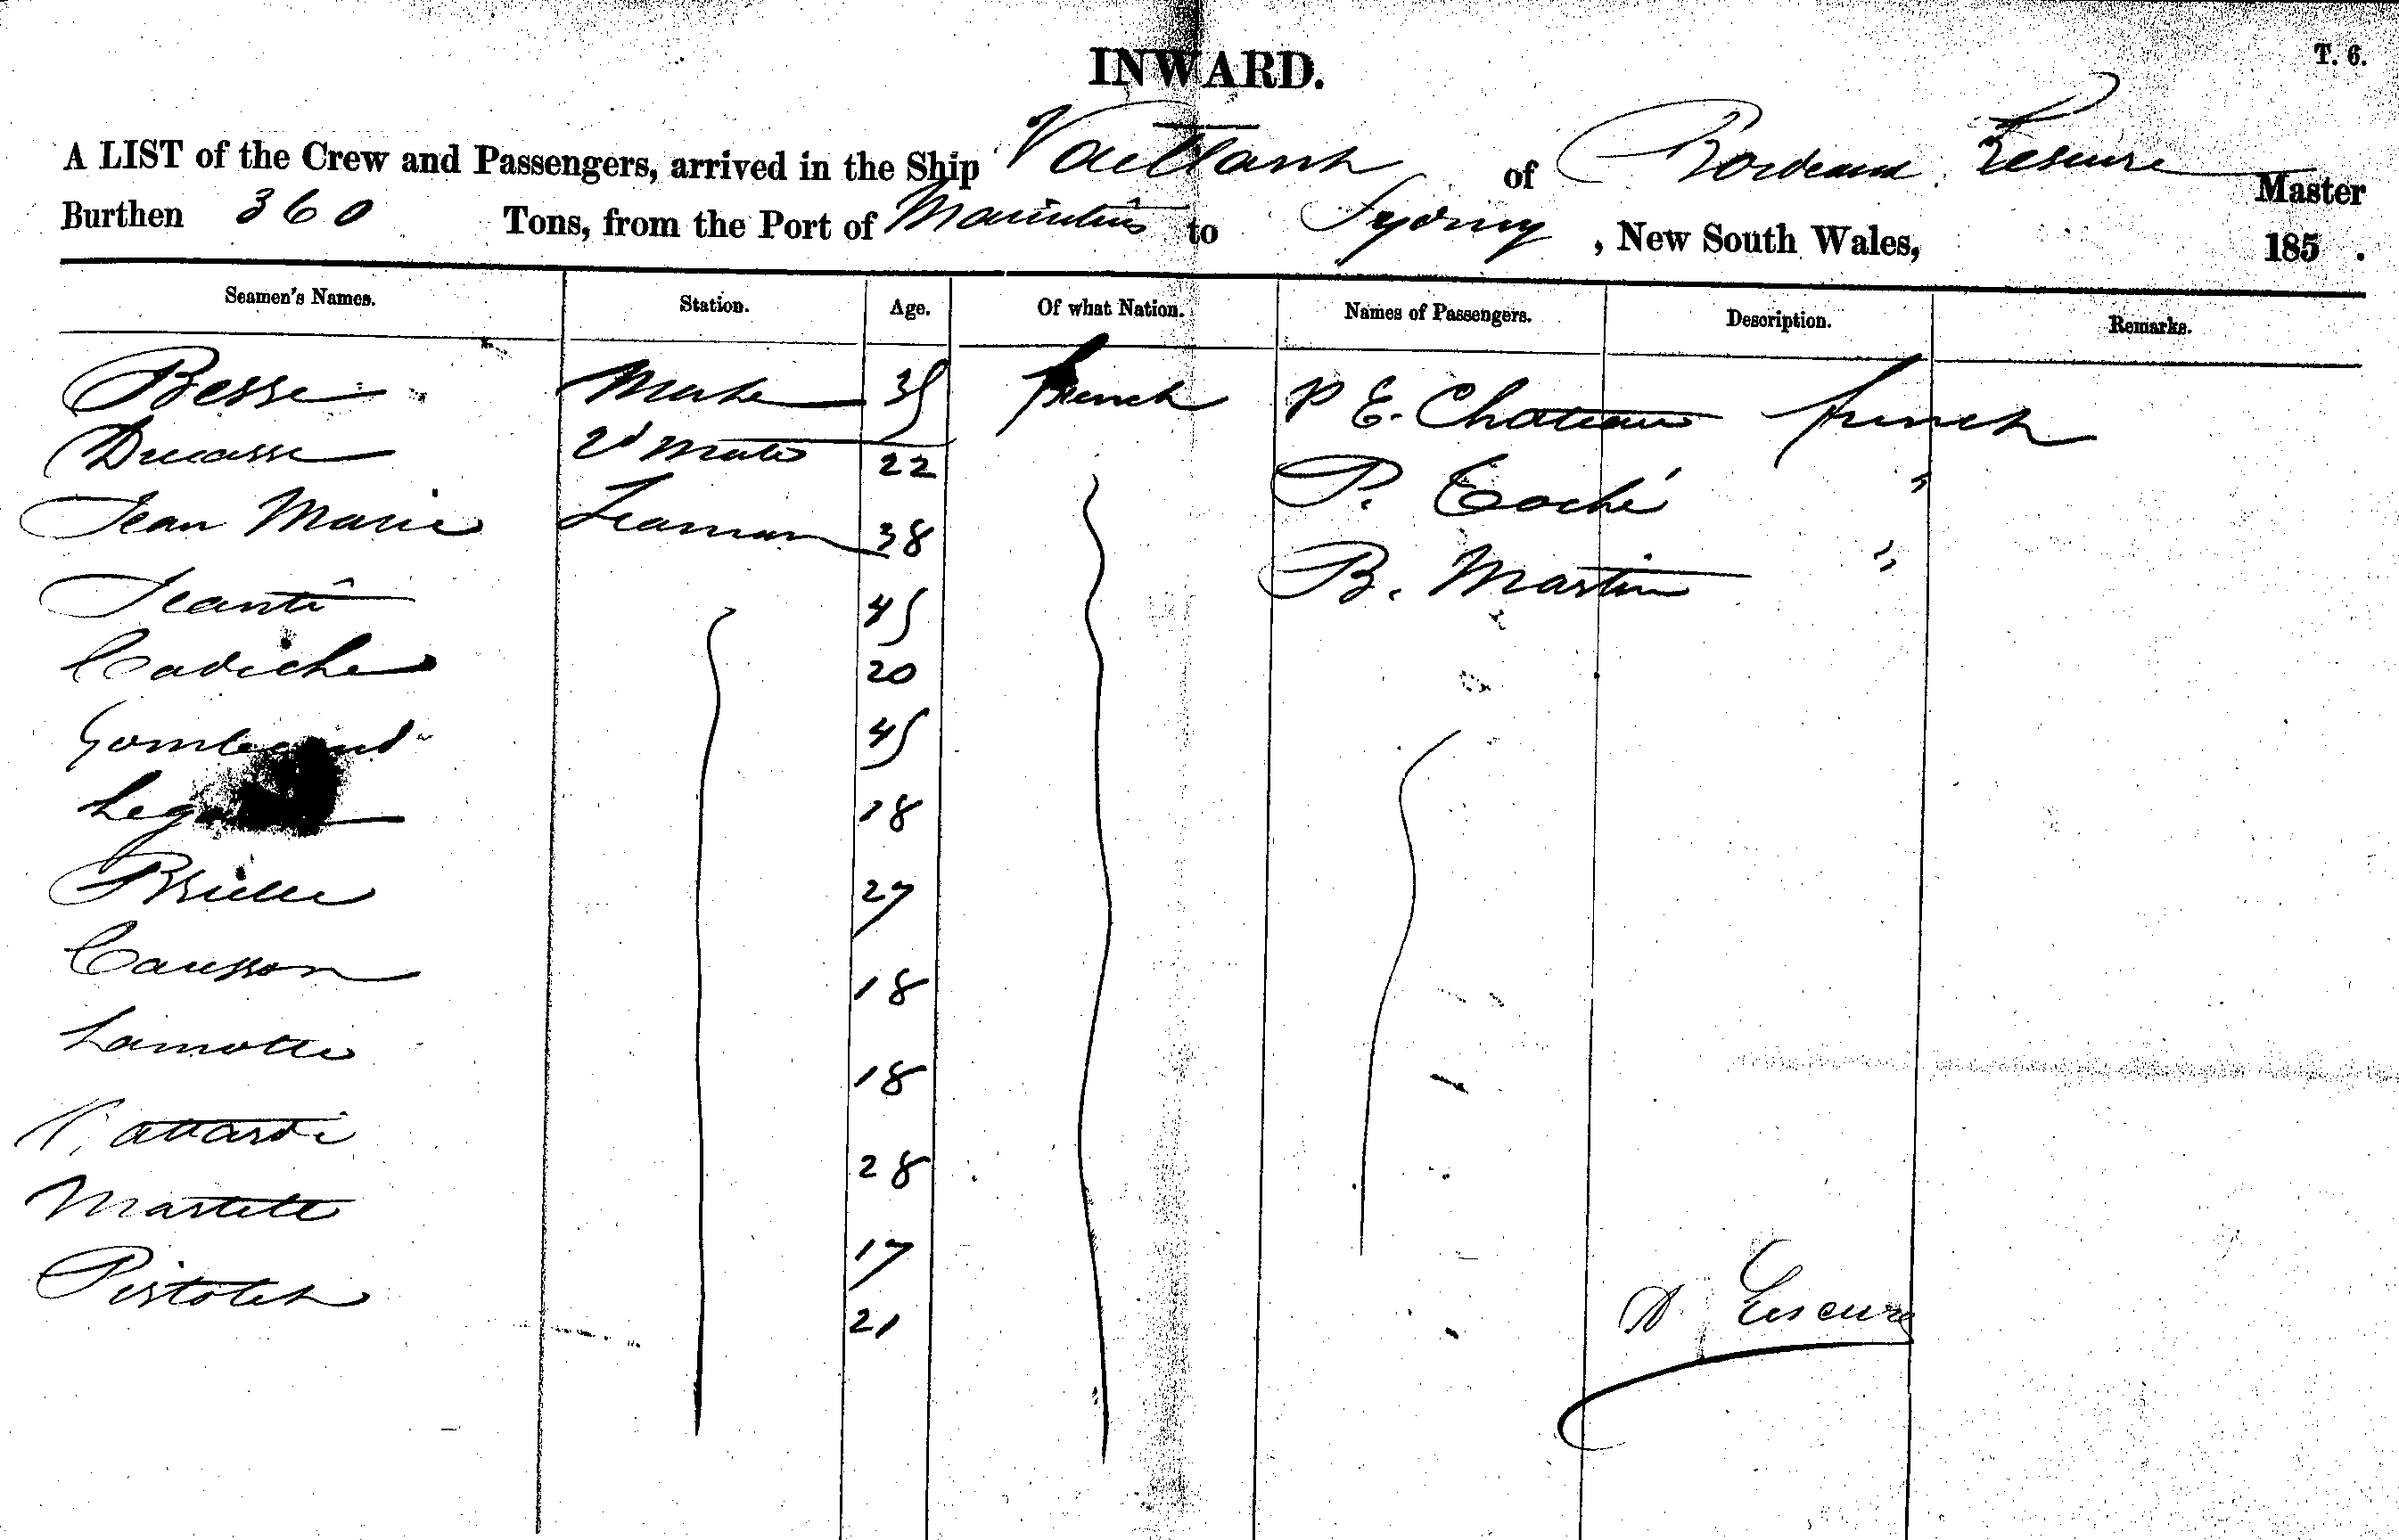 INWARD.
T. 6.
A LIST of the Crew and Passengers, arrived in the Ship Vaillant of Bordeaux Lescure Master
Burthen 360 Tons, from the Port of Mauritius to Sydney, New South Wales, 185 .
Seamen's Names. Station. Age. Of what Nation. Names of Passengers. Description. Remarks.
Besse Mate 35 french P E. Chateau french
Ducasse 2d Mate 22 P. Coché "
Jean Marie Seaman 38 B. Martin "
Jeanti 45
Cadiche 20
45
18
27
Causson 18
Lamotte 18
28
Martell 17
Pistolet 21
Lescure